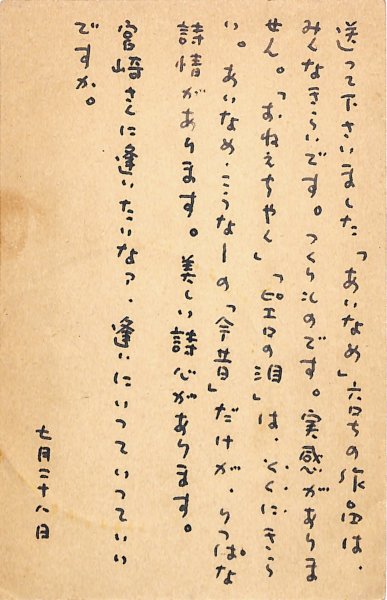 送って下さいました「あいなめ」六号の作品は、
みんなきらいです。つくりものです。実感がありま
せん。「おねえちゃん」「ピエロの泪」は、とくにきら
い。あいなめ・こうなーの「今昔」だけが、りっぱな
詩情があります。美しい詩心があります。
宮崎さんに逢いたいなァ、逢いにいっていっていい
ですか。
七月二十八日